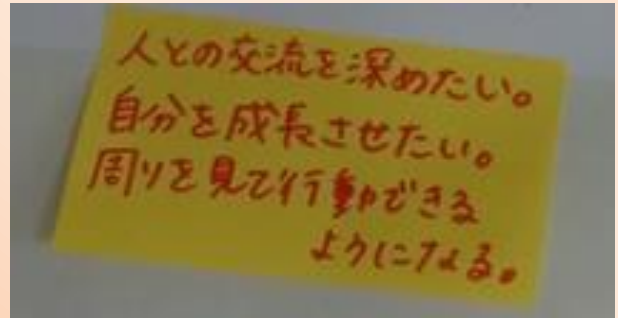 人との交流を深めたい。
自分を成長させたい。
周りを見て行動できる
ようになる。